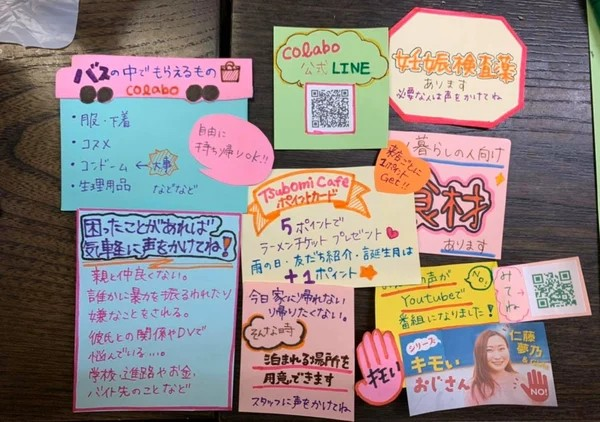 バスの中でもらえるもの
colabo
・服・下着
・コスメ
・コンドーム ← 大事
・生理用品 などなど
自由に
持ち帰りOK!!
colabo
公式LINE
妊娠検査薬
あります
必要な人は声をかけてね
暮らしの人向け
食材
あります
来店ごとに
1ポイント
Get!!
Tsubomi Cafe
ポイントカード
5ポイントで
ラーメンチケットプレゼント
雨の日・友だち紹介・誕生月は
+1ポイント
困ったことがあれば
気軽に声をかけてね!
親と仲良くない。
誰かに暴力を振るわれたり
嫌なことをされる。
彼氏との関係やDVで
悩んでいる…。
学校、進路やお金、
バイト先のことなど
今日家に帰れない
帰りたくない。
そんな時
泊まれる場所を
用意できます
スタッフに声をかけてね
の声が
Youtubeで
番組になりました!
NO!
みてね
シリーズ
キモい
おじさん
仁藤
夢乃
NO!